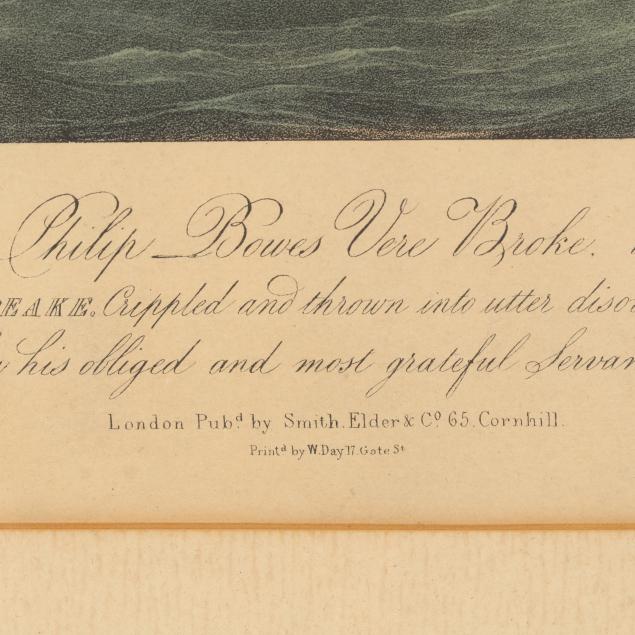 Philip Bowes Vere Broke.
EAKE. Crippled and thrown into utter diso
his obliged and most grateful Servan
London Pubd. by Smith. Elder & Co. 65. Cornhill.
Printd by W. Day 17. Gate St